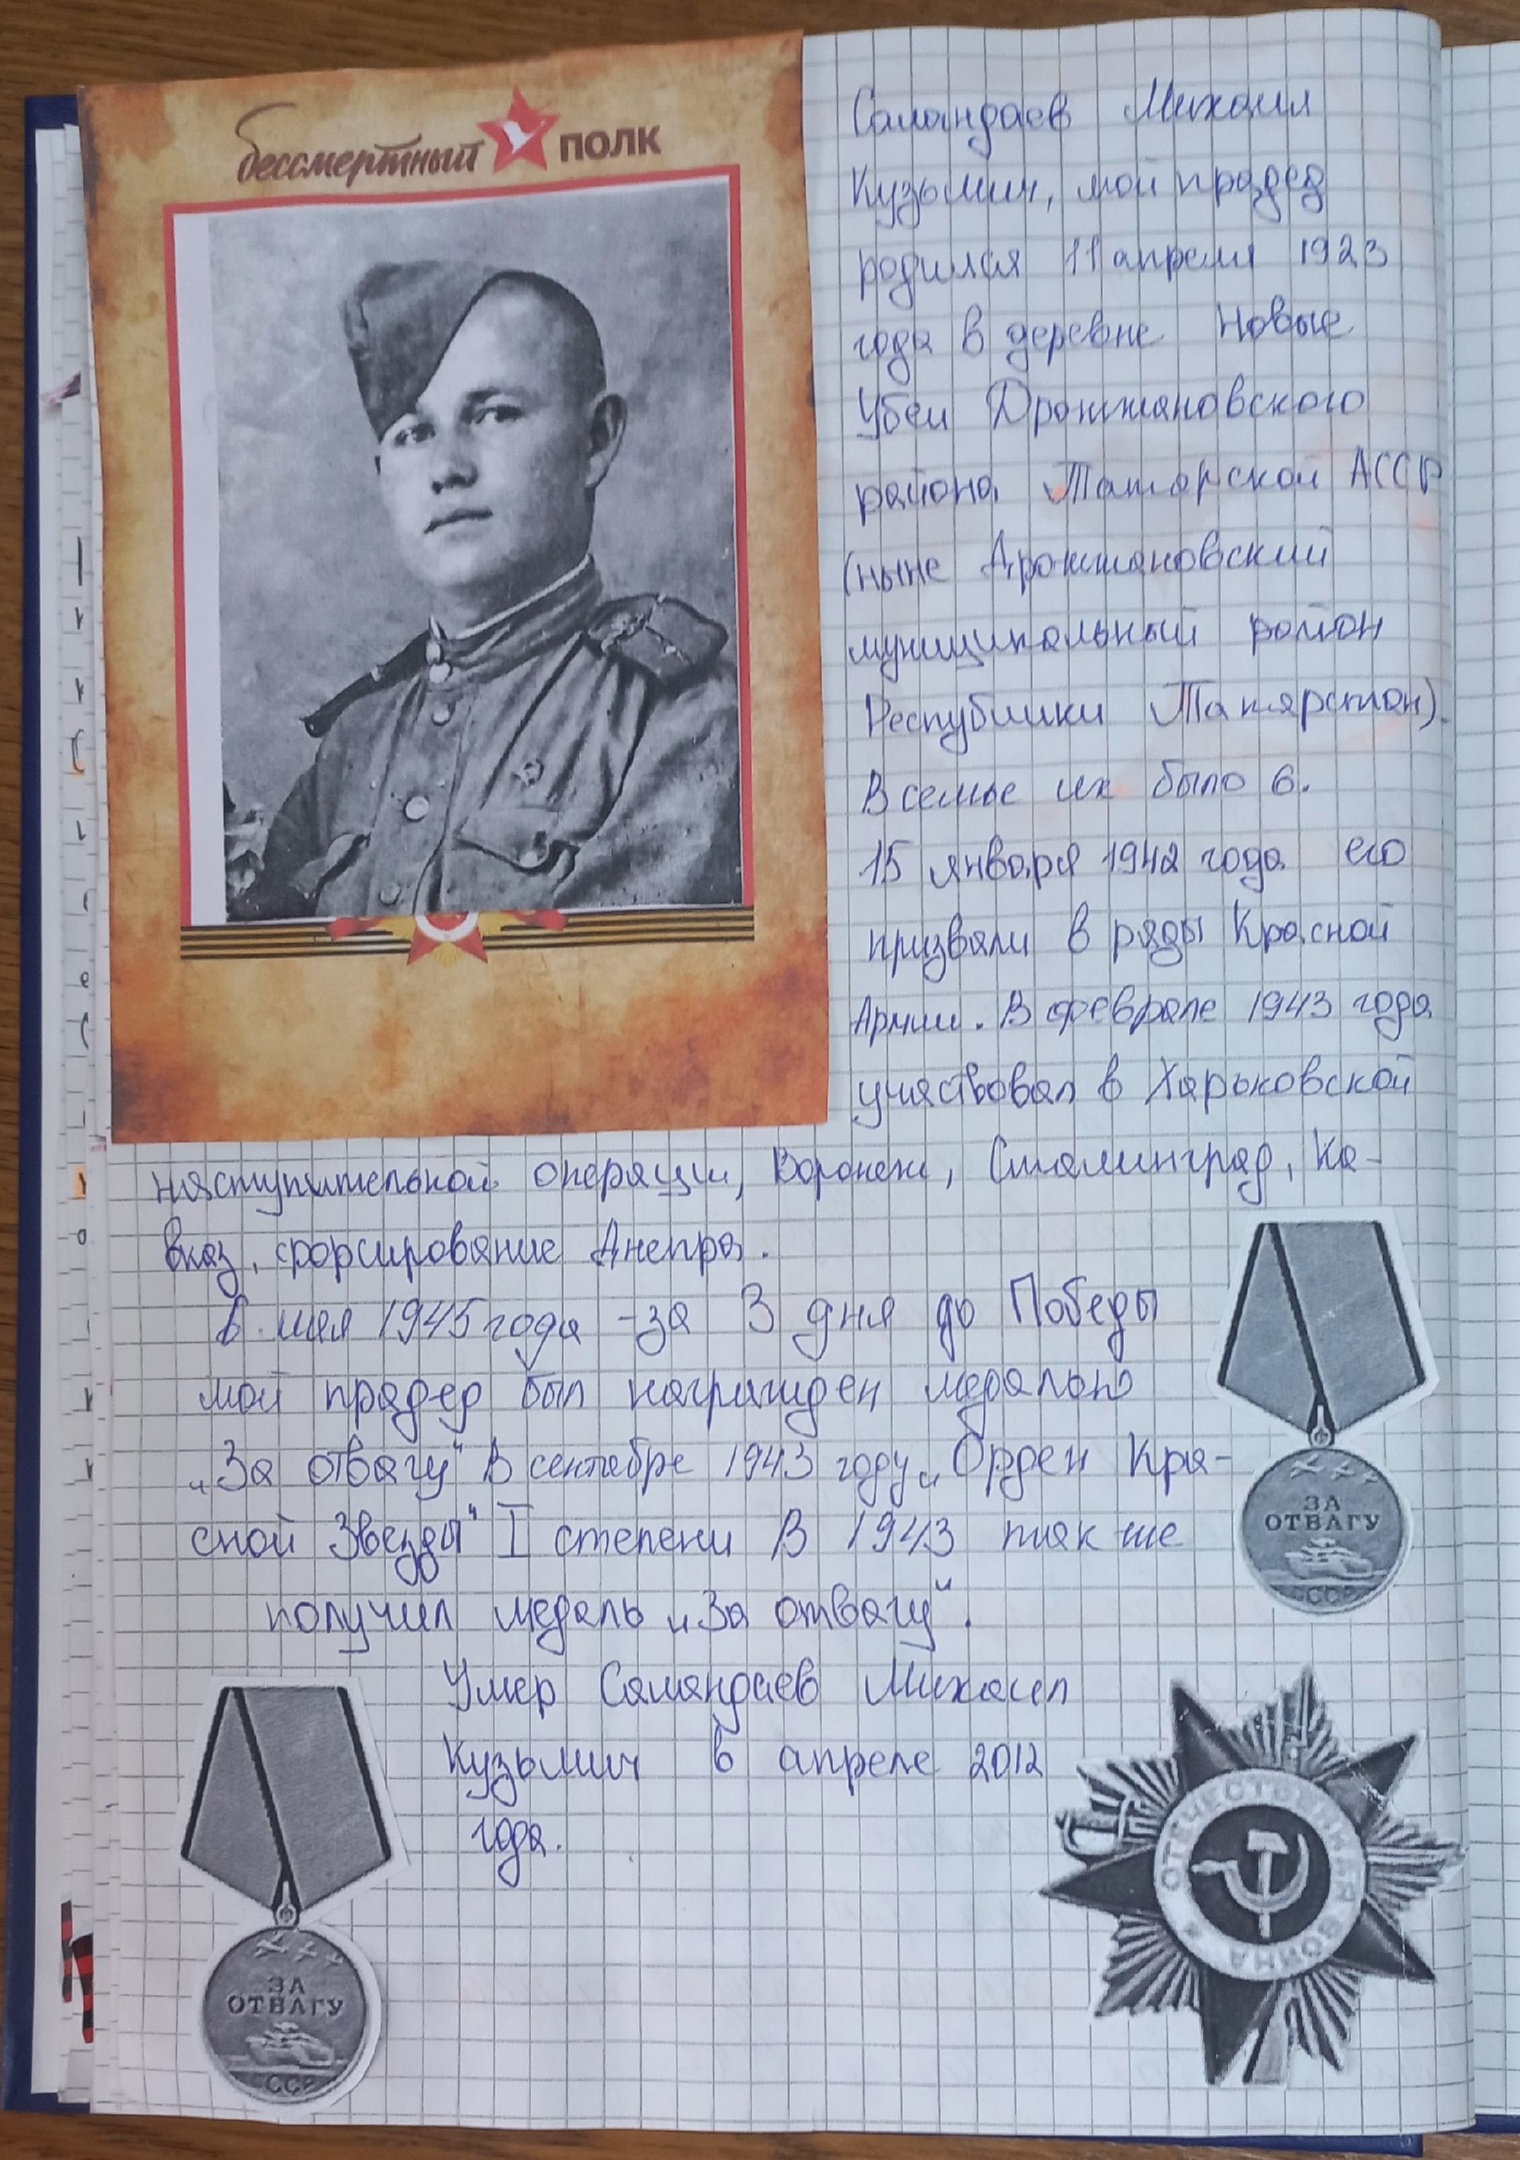 бессмертный полк
Самандаев Михаил
Кузьмич, мой прадед
родился 11 апреля 1923
года в деревне Новые
Убеи Дрожжановского
района Татарской АССР
(ныне Дрожжановский
муниципальный район
Республики Татарстан).
В семье их было 6.
15 января 1942 года его
призвали в ряды Красной
Армии. В феврале 1943 года
участвовал в Харьковской
наступительной операции, Воронеж, Сталинград, Ка-
вказ, форсирование Днепра.
6 мая 1945 года - за 3 дня до Победы
мой прадед был награжден медалью
„За отвагу" В сентябре 1943 году „Орден Кра-
сной Звезды" I степени В 1943 также
получил медаль „За отвагу".
Умер Самандаев Михаил
Кузьмич в апреле 2012
года.
ЗА
ОТВАГУ
СССР
ЗА
ОТВАГУ
СССР
ОТЕЧЕСТВЕННАЯ ВОЙНА